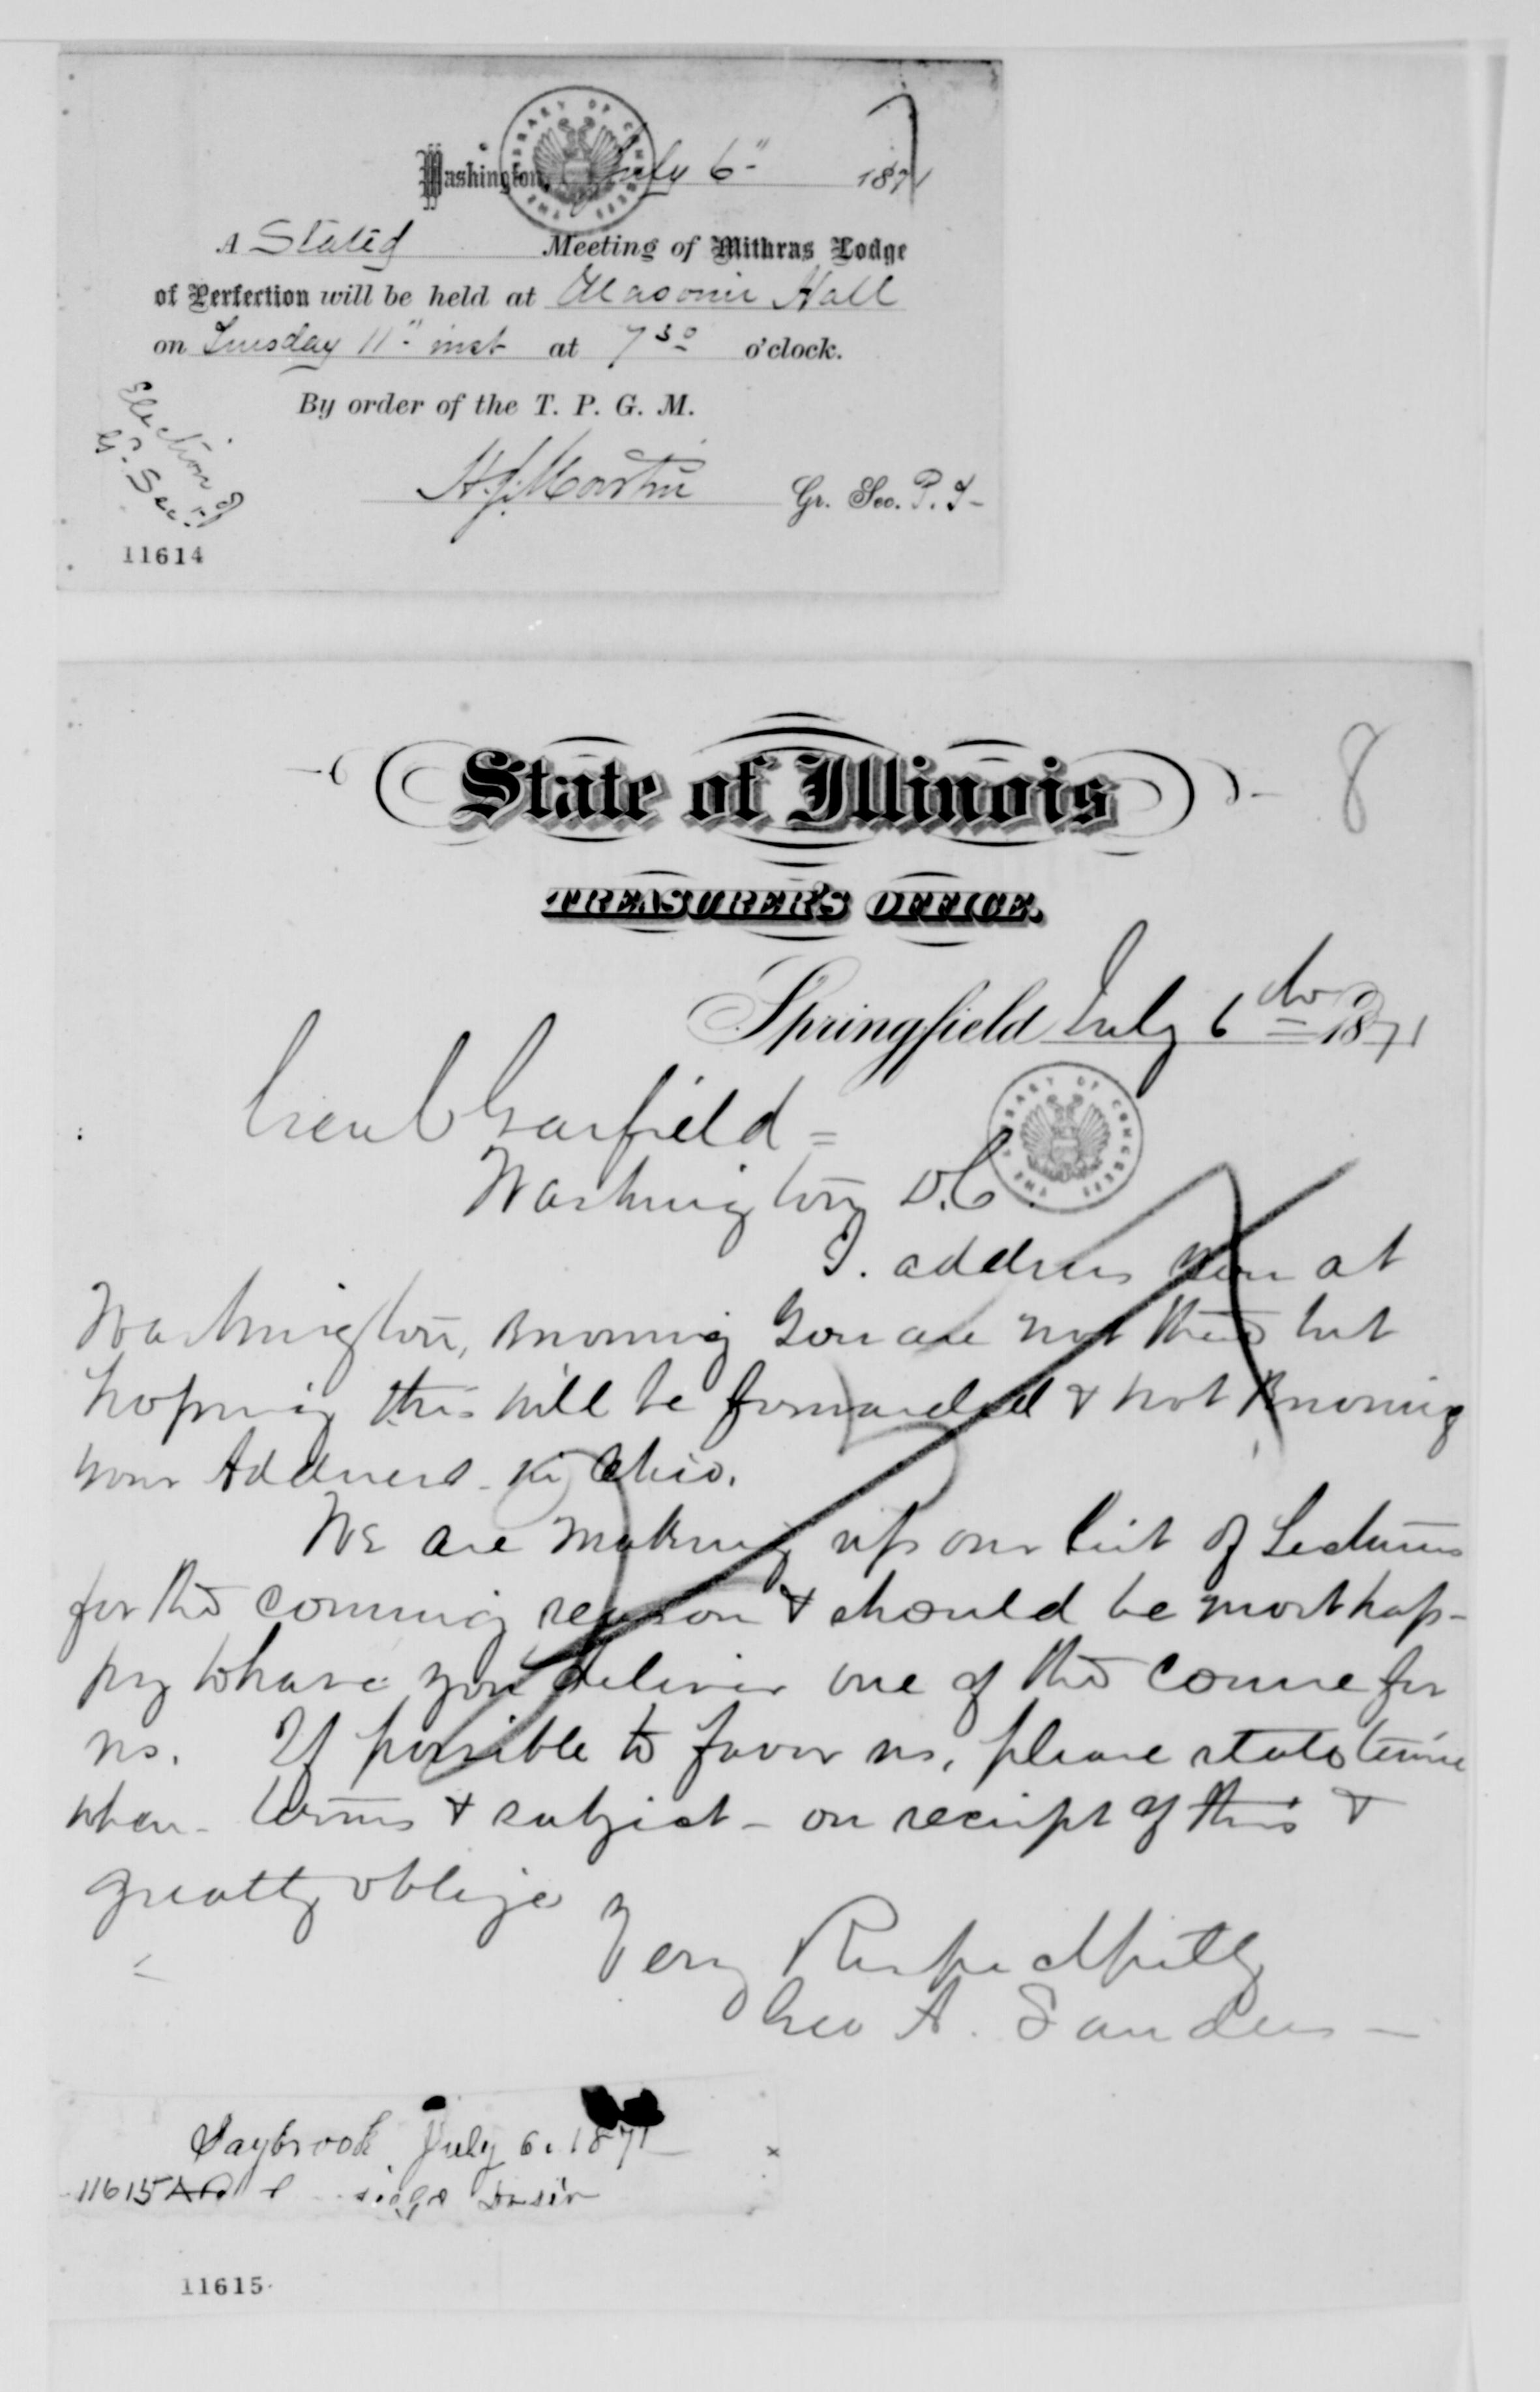 Washington, July 6" 1871
A Stated Meeting of Mithras Lodge
of Perfection will be held at Masonic Hall
on Tuesday 11" inst at 7 30 o'clock.
By order of the T. P. G. M.
Election of
Gr. Sec.
H. J. Martin Gr. Sec. P. T-
11614
8
State of Illinois
TREASURER'S OFFICE.
Springfield July 6th 1871
THE LIBRARY OF CONGRESS
Genl Garfield =
Washington D.C.
I. address you at
Washington, knowing you are not there but
hoping this will be forwarded & not knowing
your Address in Ohio.
We are making up our list of Lectures
for the coming season & should be most hap-
py to have you deliver one of the course for
us. If possible to favor us, please state time
when - terms & subject - on receipt of this &
greatly oblige
Very Respectfully
Geo A. Sanders -
Saybrook July 6. 1871
11615
11615